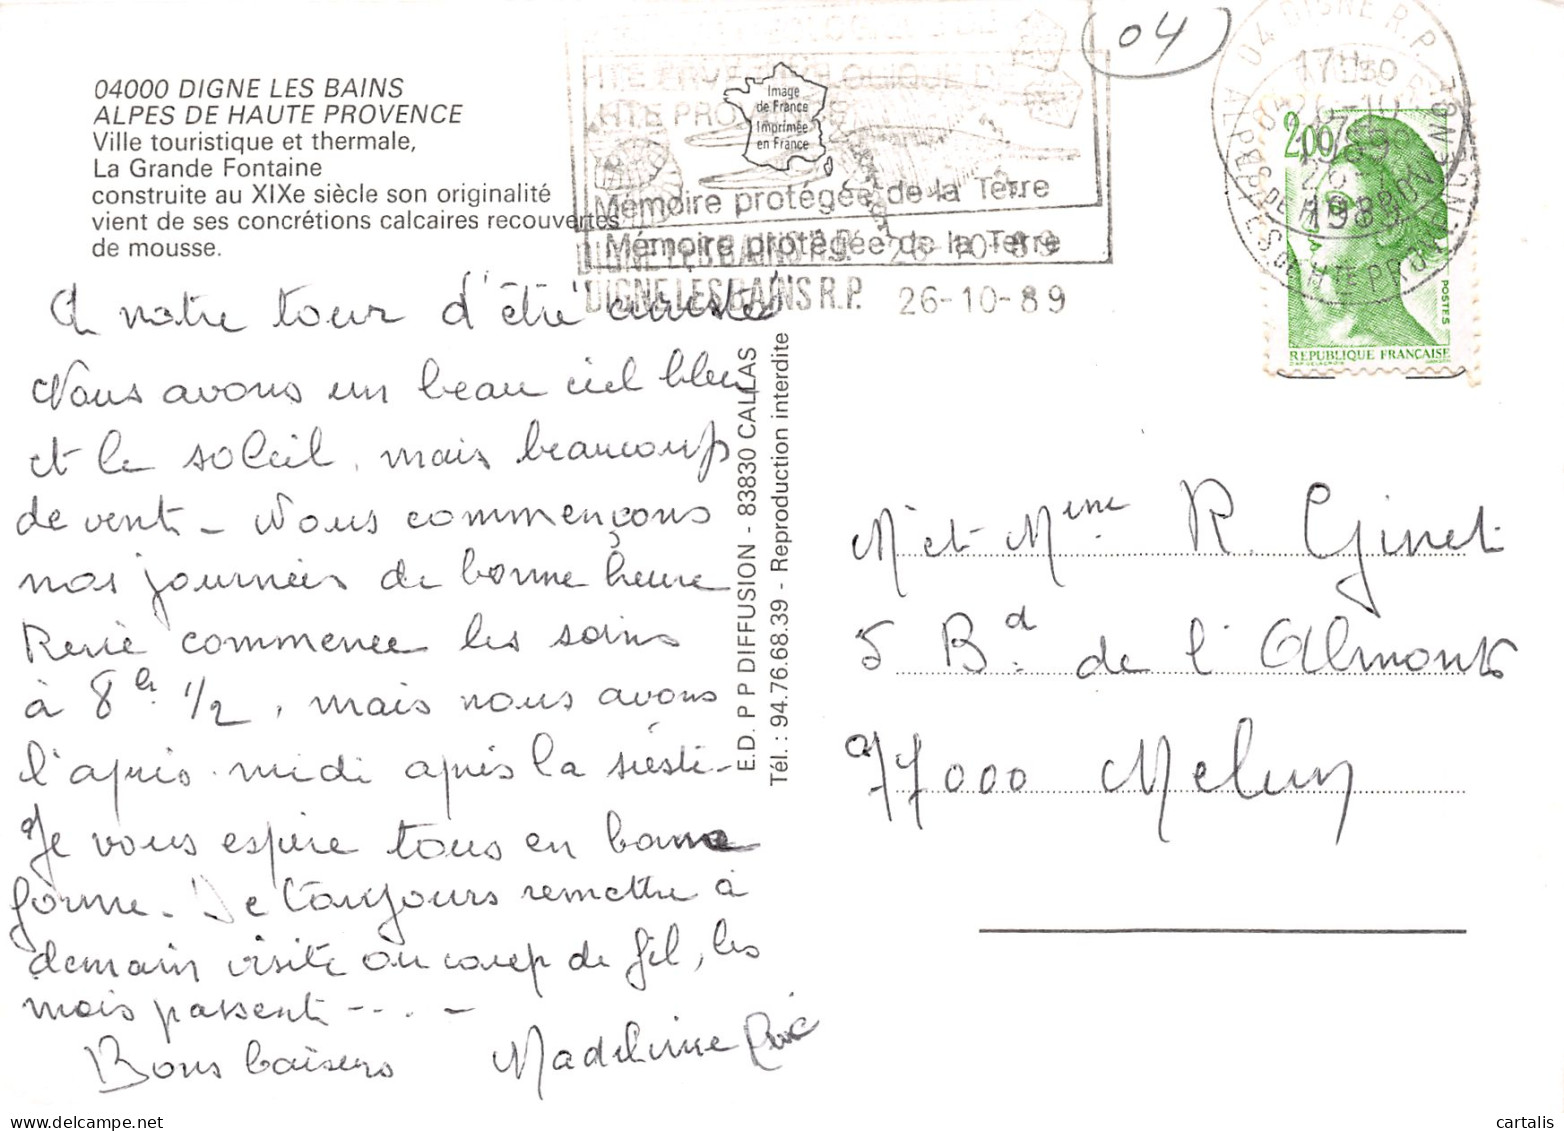 04000 DIGNE LES BAINS
ALPES DE HAUTE PROVENCE
Ville touristique et thermale,
La Grande Fontaine
construite au XIXe siècle son originalité
vient de ses concrétions calcaires recouvertes
de mousse.
Image
de France
Imprimée
en France
Mémoire protégée de la Terre
Mémoire protégée de la Terre
DIGNE LES BAINS R.P. 26-10-89
DIGNE LES BAINS R.P. 26-10-89
04
04 DIGNE R.P.
17H
26-10
1989
ALPES DE HTE PROVENCE
2.00
POSTES
REPUBLIQUE FRANÇAISE
A notre tour d'être curistes
Nous avons un beau ciel bleu
et le soleil, mais beaucoup
de vent - Nous commençons
nos journées de bonne heure
René commence les soins
à 8h 1/2, mais nous avons
l'après-midi après la sieste -
Je vous espère tous en bonne
forme. De toujours remettre à
demain visite ou coup de fil, les
mois passent - - . . -
Bons baisers Madeleine René
E.D. P P DIFFUSION - 83830 CALLAS
Tél. : 94.76.68.39 - Reproduction interdite
Mr et Mme R. Ginet
5 Bd. de l'Almont
77000 Melun
cartalis